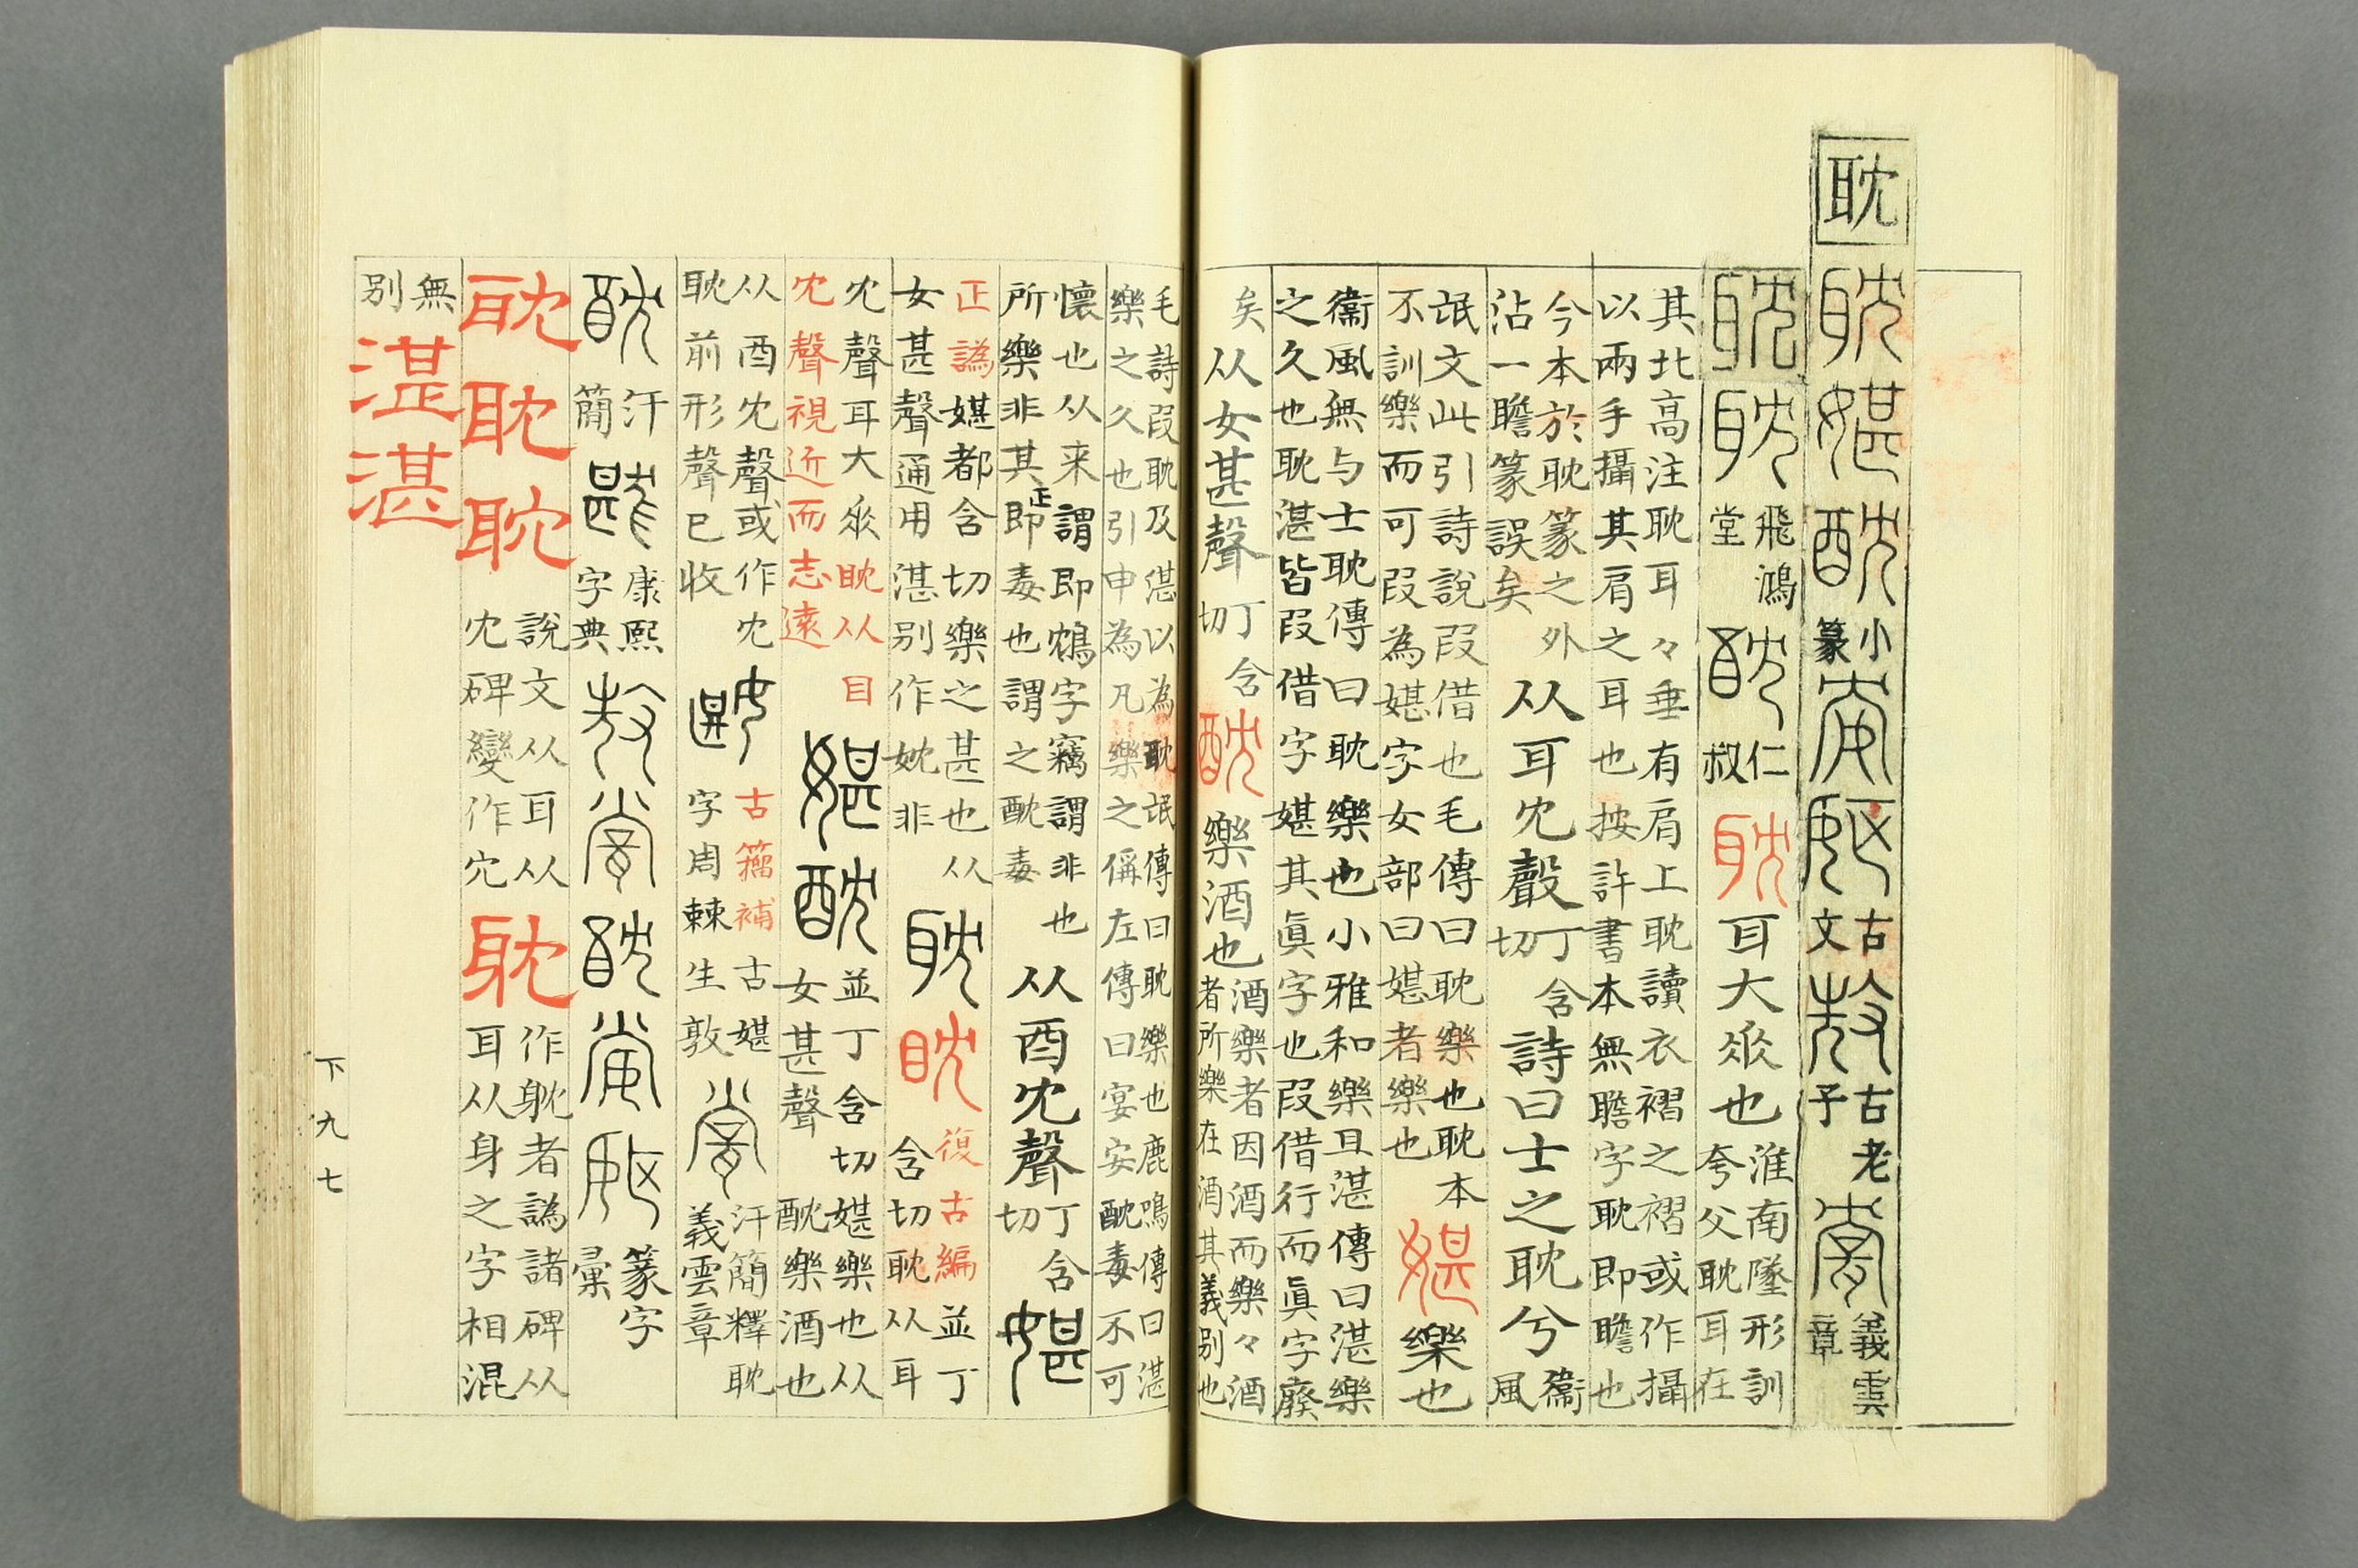 耽
耽媅酖小篆古文古老子義雲章
耽耽飛鴻堂酖仁叔耽耳大𠂢也淮南墬形訓夸父耽耳在
其北高注耽耳々垂有肩上耽讀衣褶之褶或作攝
以兩手攝其肩之耳也按許書本無瞻字耽即瞻也
今本於耽篆之外
沾一瞻篆誤矣从耳冘聲丁含切詩曰士之耽兮衞風
氓文此引詩說叚借也毛傳曰耽樂也耽本
不訓樂而可叚為媅字女部曰媅者樂也媅樂也
衞風無与士耽傳曰耽樂也小雅和樂且湛傳曰湛樂
之久也耽湛皆叚借字媅其眞字也叚借行而眞字廢
矣从女甚聲丁含切酖樂酒也酒樂者因酒而樂々酒
者所樂在酒其義别也
毛詩叚耽及湛以為耽氓傳曰耽樂也鹿鳴傳曰湛
樂之久也引申為凡樂之偁左傳曰宴安酖毒不可
懷也从来謂即鴆字竊謂非也
所樂非其正即毒也謂之酖毒从酉冘聲丁含切媅
正譌媅都含切樂之甚也从
女甚聲通用湛别作妉非耽眈復古編並丁含切耽从耳
冘聲耳大𠂢眈从目
冘聲視近而志遠媅酖並丁含切媅樂也从女甚聲酖樂酒也
从酉冘聲或作冘
耽前形聲已收古籀補古媅字周棘生敦汗簡釋耽義雲章
酖汗簡康熙字典酖篆字彙
耽耽耽說文从耳从冘碑變作冗耽作躭者譌諸碑从耳从身之字相混
無别湛湛
下九七